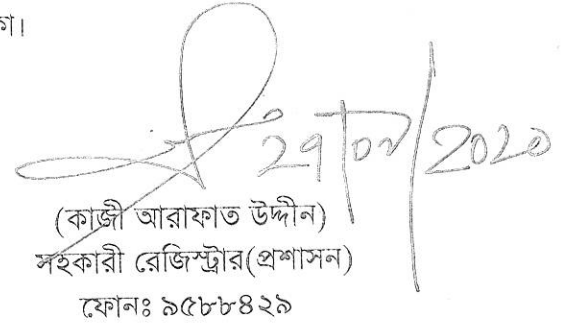 কা।
২৭|০৭|২০২০
(কাজী আরাফাত উদ্দীন)
সহকারী রেজিস্ট্রার(প্রশাসন)
ফোনঃ ৯৫৮৮৪২৯